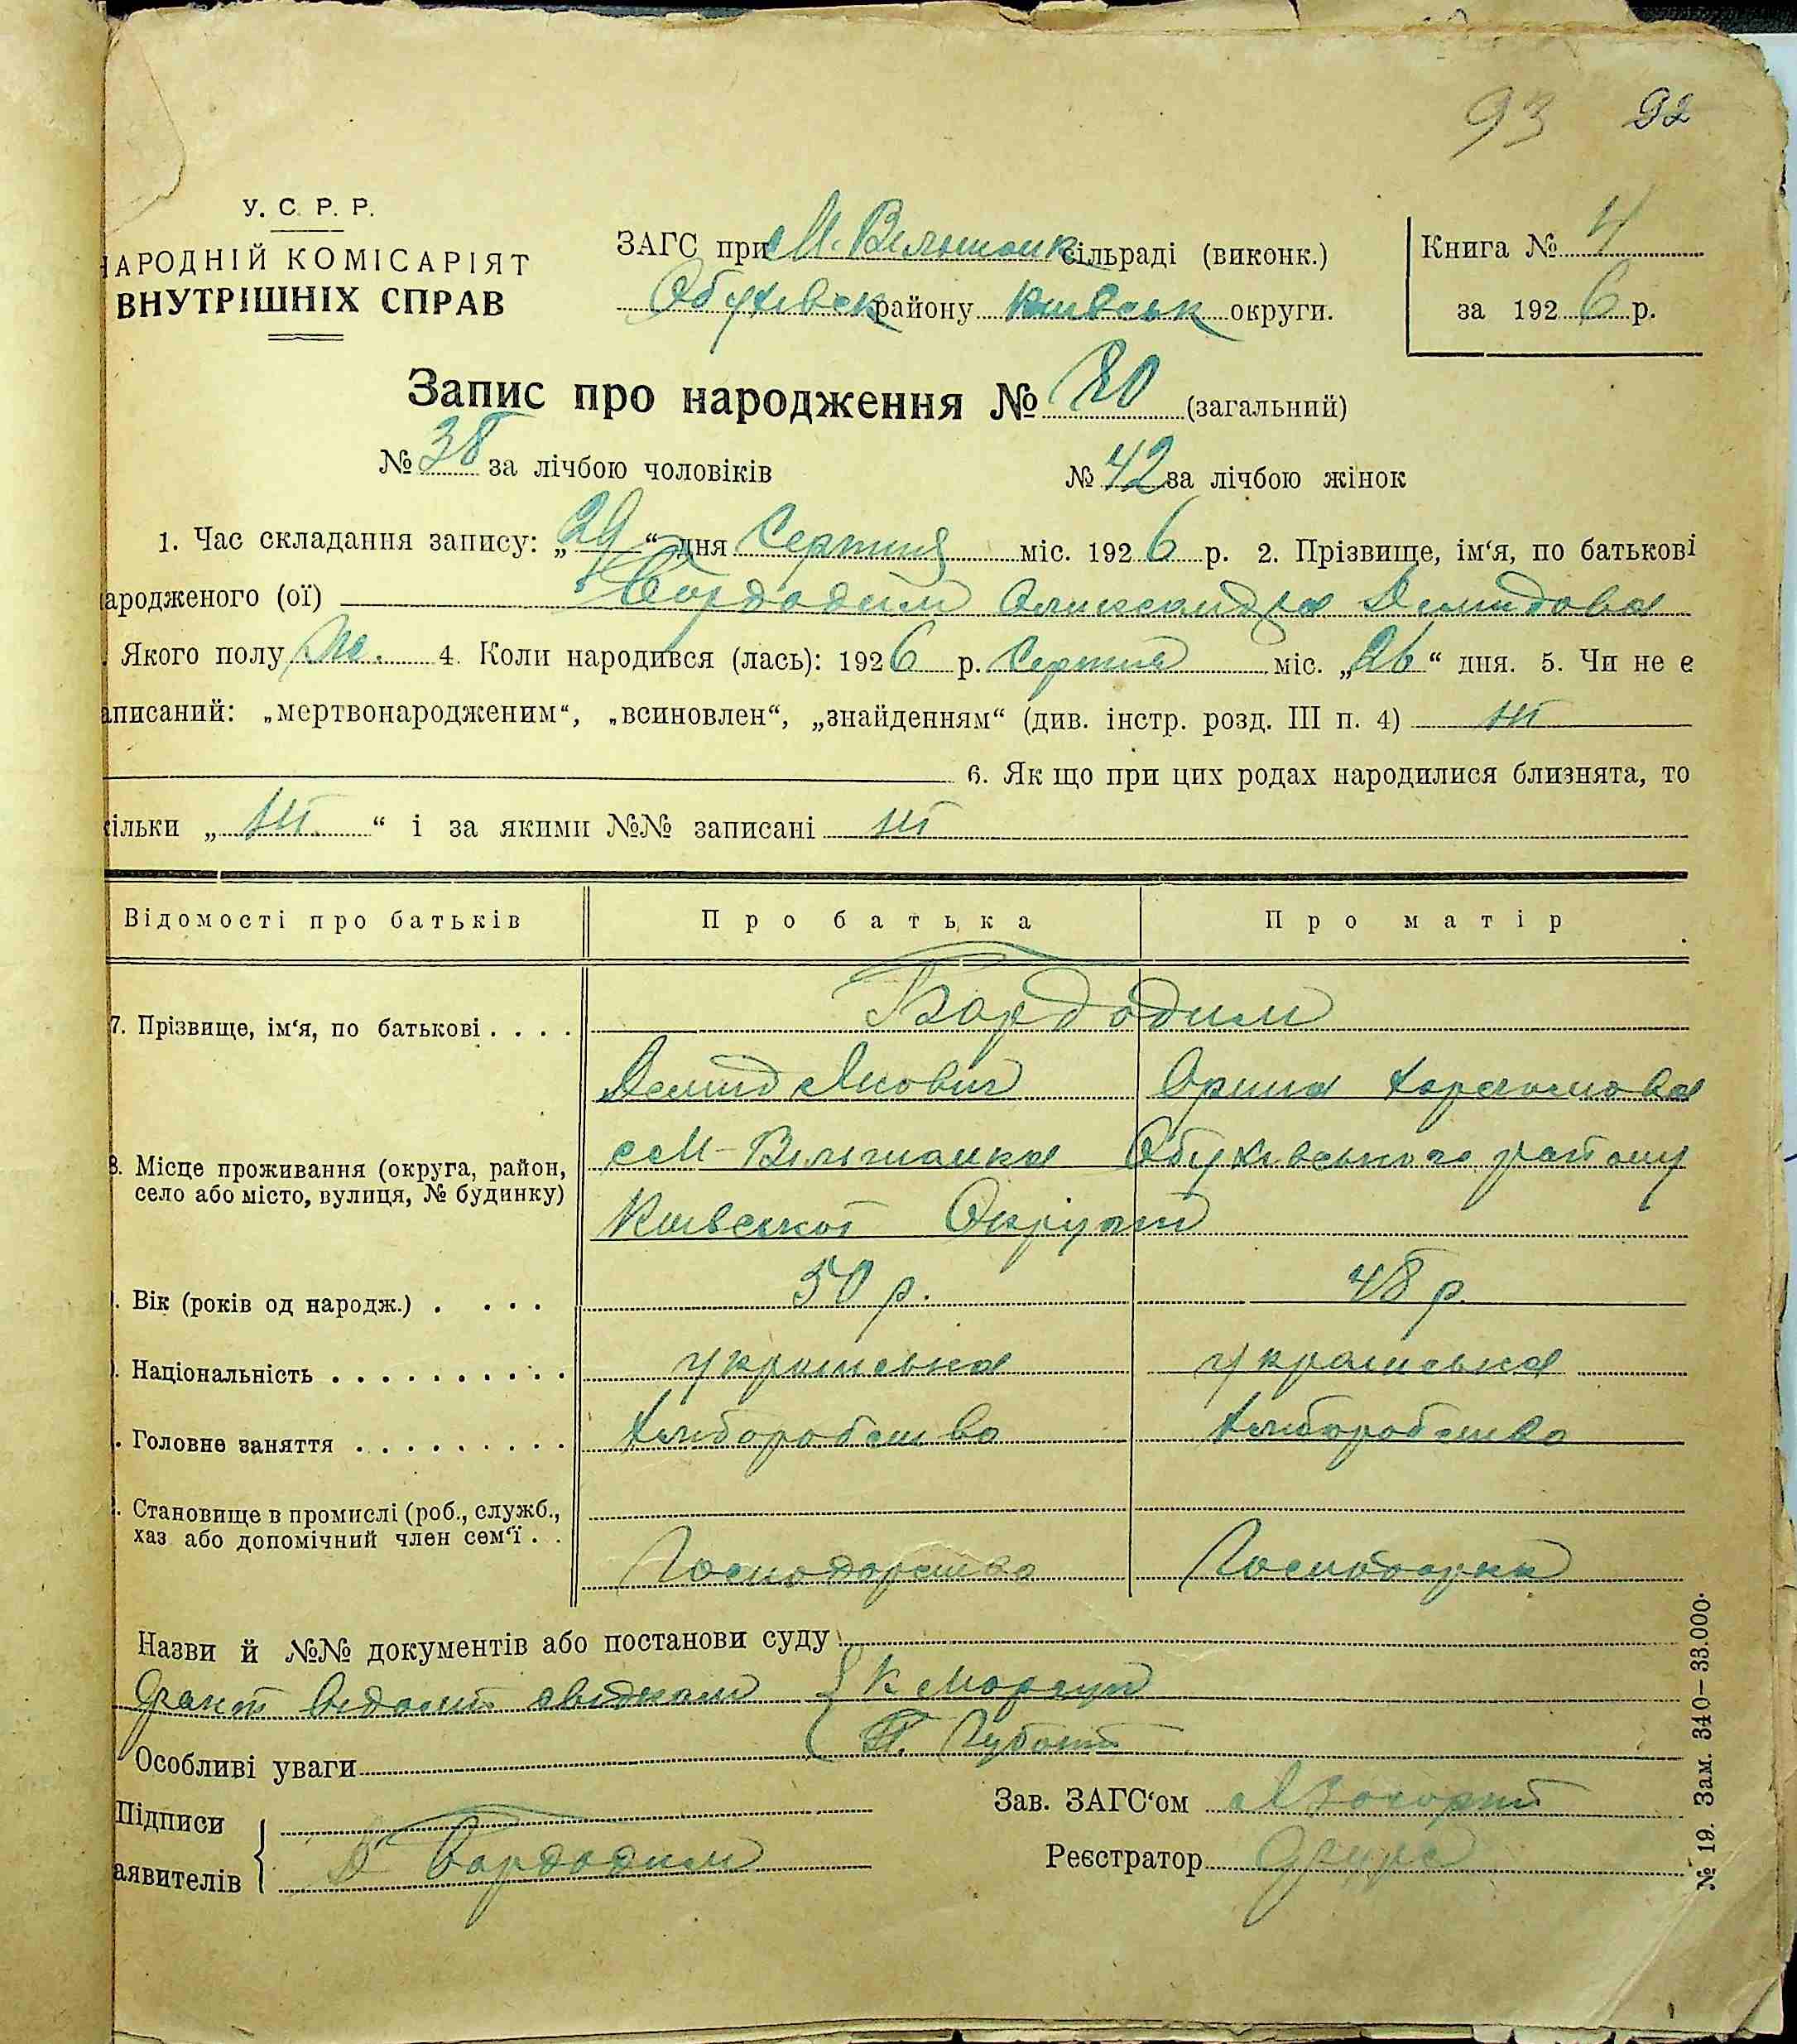 93 92
У. С. Р. Р.
НАРОДНІЙ КОМІСАРІЯТ
ВНУТРІШНІХ СПРАВ
ЗАГС при М. Вільшанк сільраді (виконк.)
Обухівськ району Київськ округи.
Книга № 4
за 1926 р.
Запис про народження № 80 (загальний)
№ 38 за лічбою чоловіків № 42 за лічбою жінок
1. Час складання запису: „29“ дня Серпня міс. 1926 р. 2. Прізвище, ім‘я, по батькові
ародженого (ої) Бордодим Олександра Демидова
Якого полу жі. 4. Коли народився (лась): 1926 р. Серпня міс. „26“ дня. 5. Чи не є
аписаний: „мертвонародженим“, „всиновлен“, „знайденням“ (див. інстр. розд. III п. 4) ні
6. Як що при цих родах народилися близнята, то
кільки „ні“ і за якими №№ записані ні
Відомості про батьків Про батька Про матір
7. Прізвище, ім‘я, по батькові . . . . Бордодим
Демид Якович Орина
8. Місце проживання (округа, район,
село або місто, вулиця, № будинку)
с М-Вільшанка Обухівського району
Київської Округи
. Вік (років од народж.) . . . . 50 р. 48 р.
. Національність . . . . . . . . . . українська українська
. Головне заняття . . . . . . . . . Хліборобство Хліборобство
. Становище в промислі (роб., служб.,
хаз або допомічний член сем‘ї . .
Господарство Господарка
Назви й №№ документів або постанови суду
відомий свідкам К Моргун
П.
Особливі уваги
Підписи
аявителів Д Бордодим
Зав. ЗАГС‘ом
Реєстратор
№ 19. Зам. 340–33.000.